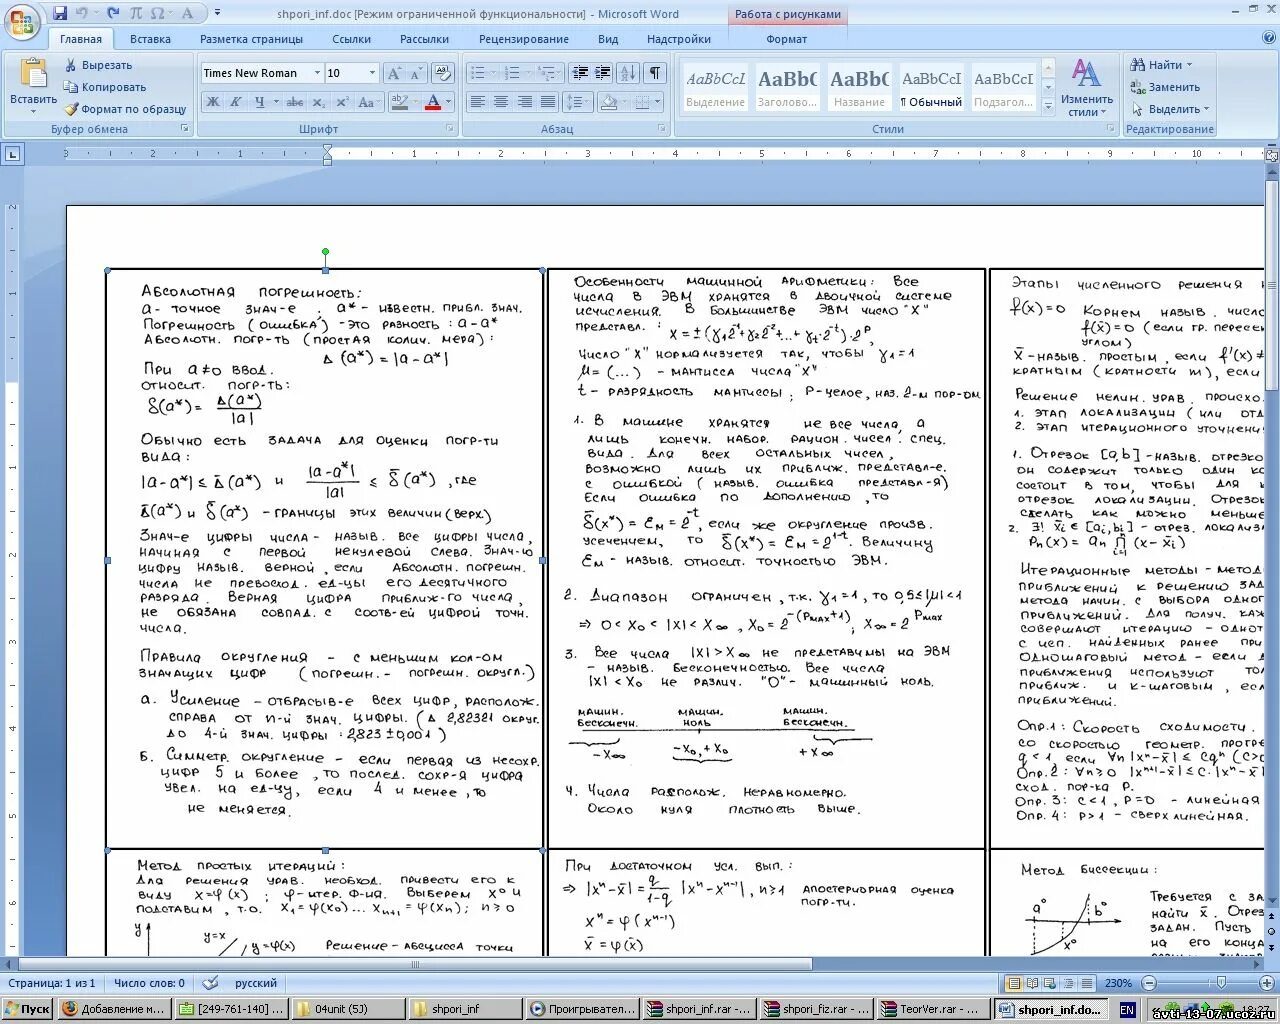 shpori_inf.doc [Режим ограниченной функциональности] - Microsoft Word
Работа с рисунками
Главная Вставка Разметка страницы Ссылки Рассылки Рецензирование Вид Надстройки Формат
Вставить
Вырезать
Копировать
Формат по образцу
Буфер обмена
Times New Roman 10
Ж К Ч abc x₂ x² Aa
Шрифт
Абзац
AaBbCcI AaBbC AaBbC AaBbCcI AaBbCcI
Выделение Заголово... Название ¶ Обычный Подзагол...
Изменить стили
Стили
Найти
Заменить
Выделить
Редактирование
Абсолютная погрешность:
a - точное знач-е; a* - известн. прибл. знач.
Погрешность (ошибка) - это разность: a-a*
Абсолютн. погр-ть (простая колич. мера):
Δ(a*) = |a-a*|
При a≠0 ввод.
относит. погр-ть:
δ(a*) = Δ(a*)/|a|
Обычно есть задача для оценки погр-ти
вида:
|a-a*| ≤ Δ̄(a*) и |a-a*|/|a| ≤ δ̄(a*), где
Δ̄(a*) и δ̄(a*) - границы этих величин (верх.)
Знач-е цифры числа - назыв. все цифры числа,
начиная с первой ненулевой слева. Знач-ю
цифру назыв. верной, если абсолютн. погрешн.
числа не превосход. ед-цы его десятичного
разряда. Верная цифра приближ-го числа,
не обязана совпад. с соотв-ей цифрой точн.
числа.
Правила округления - с меньшим кол-ом
значащих цифр (погрешн. - погрешн. округл.)
а. Усиление - отбрасыв-е всех цифр, располож.
справа от n-й знач. цифры. (Δ 2,82321 округ.
до 4-й знач. цифры: 2,823 ± 0,001)
Б. Симметр. округление - если первая из несохр.
цифр 5 и более, то послед. сохр-я цифра
увел. на ед-цу, если 4 и менее, то
не меняется.
Особенности машинной арифметики: Все
числа в ЭВМ хранятся в двоичной системе
исчисления. В большинстве ЭВМ число "X"
представл.:
X = ±(γ₁2⁻¹+γ₂2⁻²+...+γt·2⁻ᵗ)·2ᴾ,
Число "X" нормализуется так, чтобы γ₁=1
μ = (...) - мантисса числа "X"
t - разрядность мантиссы; P-целое, наз. 2-м пор-ом
1. В машине хранятся не все числа, а
лишь конечн. набор. рацион. чисел. спец.
вида. Для всех остальных чисел,
возможно лишь их приближ. представл-е.
с ошибкой (назыв. ошибка представл-я)
Если ошибка по дополнению, то
δ̄(x*) = Eм = 2⁻ᵗ, если же округление произв.
усечением, то δ̄(x*) = Eм = 2¹⁻ᵗ. Величину
Eм - назыв. относит. точностью ЭВМ.
2. Диапазон ограничен, т.к. γ₁=1, то 0,5≤|μ|<1
⇒ 0 < X₀ < |X| < X∞, X₀=2^-(Pmax+1); X∞=2^Pmax
3. Все числа |X|>X∞ не представимы на ЭВМ
- назыв. бесконечностью. Все числа
|X|<X₀ не различ. "0" - машинный ноль.
машин. бесконечн. машин. ноль машин. бесконечн.
-X∞ -X₀,+X₀ +X∞
4. Числа располож. неравномерно.
Около нуля плотность выше.
Этапы численного решения
f(x)=0 Корнем назыв. число
f(x̄)=0 (если гр. пересе
углом)
x̄-назыв. простым, если f'(x̄)≠
кратным (кратности m), если
Решение нелин. урав. происхо
1. этап локализации (или отд
2. этап итерационного уточнени
1. Отрезок [a,b] - назыв. отрезко
он содержит только один ко
состоит в том, чтобы для к
отрезок локализации. Отрезо
сделать как можно меньше
2. ∃! x̄i ∈ [ai,bi] - отрез. локализ
Pn(x) = an ∏ (x-x̄i)
Итерационные методы - метод
приближений к решению зад
метода начин. с выбора одног
приближений. Для получ. каж
совершают итерацию - однот
с исп. найденных ранее при
Одношаговый метод - если д
приближения используют то
приближ. и к-шаговым, есл
приближений.
Опр.1: Скорость сходимости.
со скоростью геометр. прогре
q<1, если ∀n |xⁿ-x̄| ≤ Cqⁿ (C>
Опр. 2: ∀n≥0 |xⁿ⁺¹-x̄| ≤ C·|xⁿ-x̄|
сход. пор-ка P.
Опр. 3: C<1, P=0 - линейная
Опр. 4: P>1 - сверхлинейная.
Метод простых итераций:
Для решения урав. необход. привести его к
виду x=φ(x); φ-итер. ф-ия. Выберем X⁰ и
подставим, т.о. X₁=φ(x₀)... Xn+1=φ(Xn); n≥0
y y=x y=φ(x) Решение - абсцисса точки
При достаточном усл. вып.:
⇒ |xⁿ-x̄| = q/(1-q) |xⁿ-xⁿ⁻¹|, n≥1 апостериорная оценка
погр-ти.
xⁿ = φ(xⁿ⁻¹)
x̄ = φ(x̄)
Метод биссекции:
a⁰ b⁰ x⁰
Требуется с за
найти x̄. Отрез
задан. Пусть
на его конца
Страница: 1 из 1 Число слов: 0 русский 230%
Пуск Добавление м... [249-761-140] ... 04unit (5J) shpori_inf Проигрывател... shpori_inf.rar - ... shpori_fiz.rar - ... TeorVer.rar - ... shpori_inf.do... EN
avti-13-07.ucoz.ru